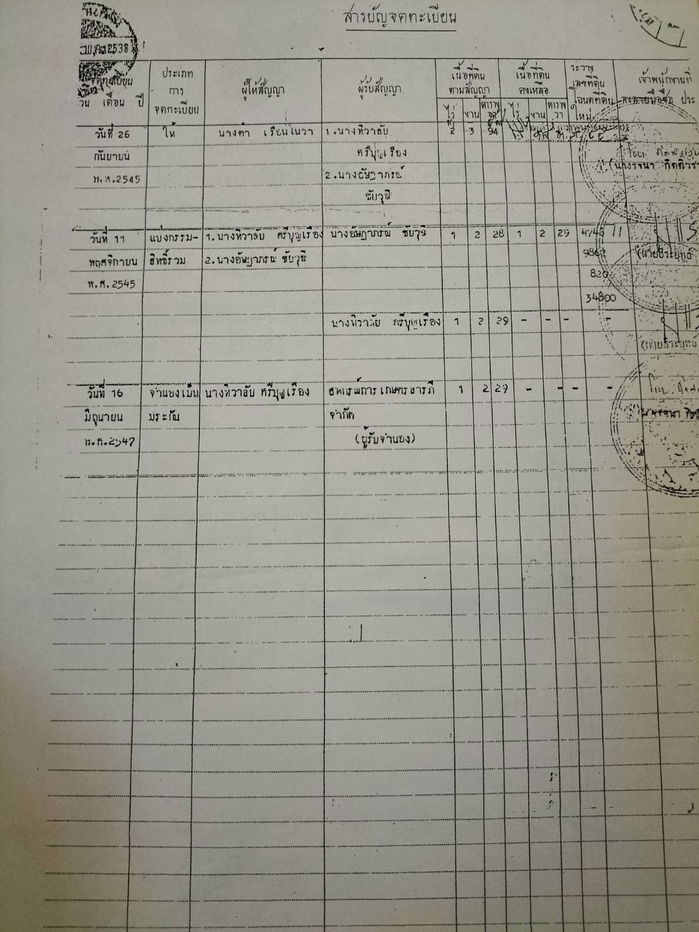 สารบัญจดทะเบียน
พ.ศ.2538
จดทะเบียน
วัน เดือน ปี
ประเภท
การ
จดทะเบียน
ผู้ให้สัญญา
ผู้รับสัญญา
เนื้อที่ดิน
ตามสัญญา
ไร่ งาน ตารางวา
เนื้อที่ดิน
คงเหลือ
ไร่ งาน ตารางวา
ระวาง
เลขที่ดิน
โฉนดที่ดิน
ใหม่
เจ้าพนักงานที่
ลงลายมือชื่อ ประ
วันที่ 26 ให้ 1.นางทิวาลัย 2 3 94
กันยายน ศรีบุญเรือง
พ.ศ.2545 2.นางอัษฎาภรณ์
ชัยวุฒิ
วันที่ 11 แบ่งกรรม- 1.นางทิวาลัย ศรีบุญเรือง นางอัษฎาภรณ์ ชัยวุฒิ 1 2 28 1 2 29 4746 11
พฤศจิกายน สิทธิ์รวม 2.นางอัษฎาภรณ์ ชัยวุฒิ
พ.ศ.2545 820
34800
นางทิวาลัย ศรีบุญเรือง 1 2 29 - - - - -
วันที่ 16 จำนองเป็น นางทิวาลัย ศรีบุญเรือง สหกรณ์การเกษตร 1 2 29 - - - - -
มิถุนายน ประกัน จำกัด
พ.ศ.2547 (ผู้รับจำนอง)